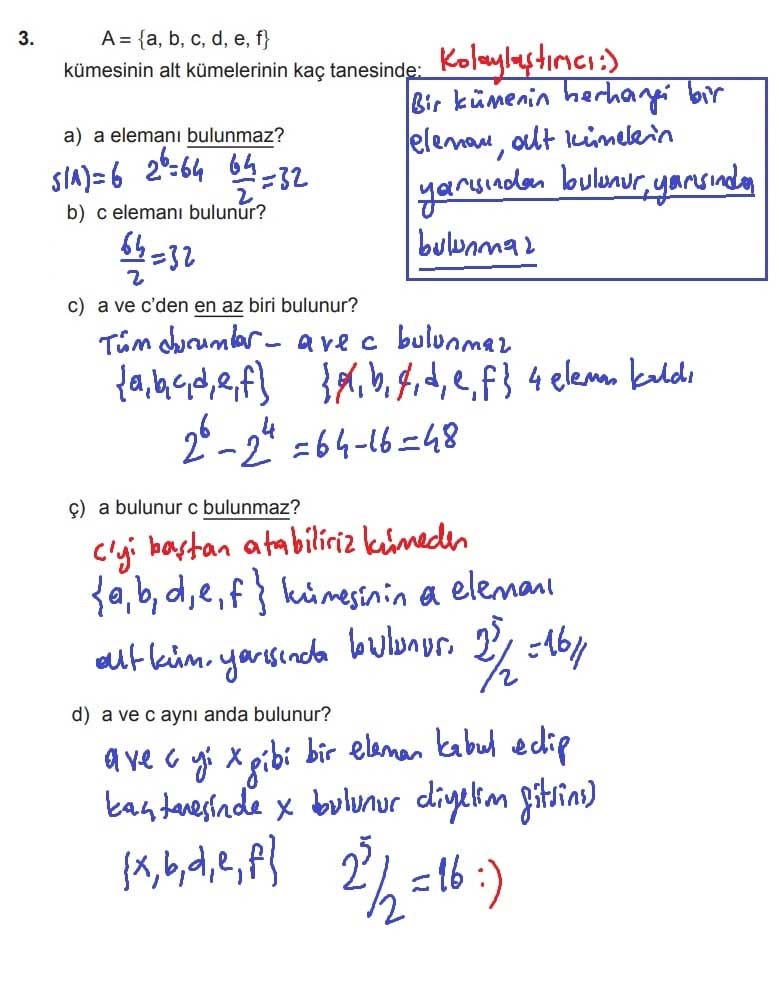 3. A = {a, b, c, d, e, f}
kümesinin alt kümelerinin kaç tanesinde;
Kolaylaştırıcı :)
Bir kümenin herhangi bir
elemanı, alt kümelerin
yarısından bulunur, yarısında
bulunmaz
a) a elemanı bulunmaz?
s(A)=6 2^6=64 64/2=32
b) c elemanı bulunur?
64/2=32
c) a ve c'den en az biri bulunur?
Tüm durumlar - a ve c bulunmaz
{a,b,c,d,e,f} {a,b,c,d,e,f} 4 eleman kaldı
2^6-2^4=64-16=48
ç) a bulunur c bulunmaz?
c'yi baştan atabiliriz kümeden
{a,b,d,e,f} kümesinin a elemanı
alt küm. yarısında bulunur. 2^5/2=16//
d) a ve c aynı anda bulunur?
a ve c yi x gibi bir eleman kabul edip
kaç tanesinde x bulunur diyelim gitsin:)
{x,b,d,e,f} 2^5/2=16 :)